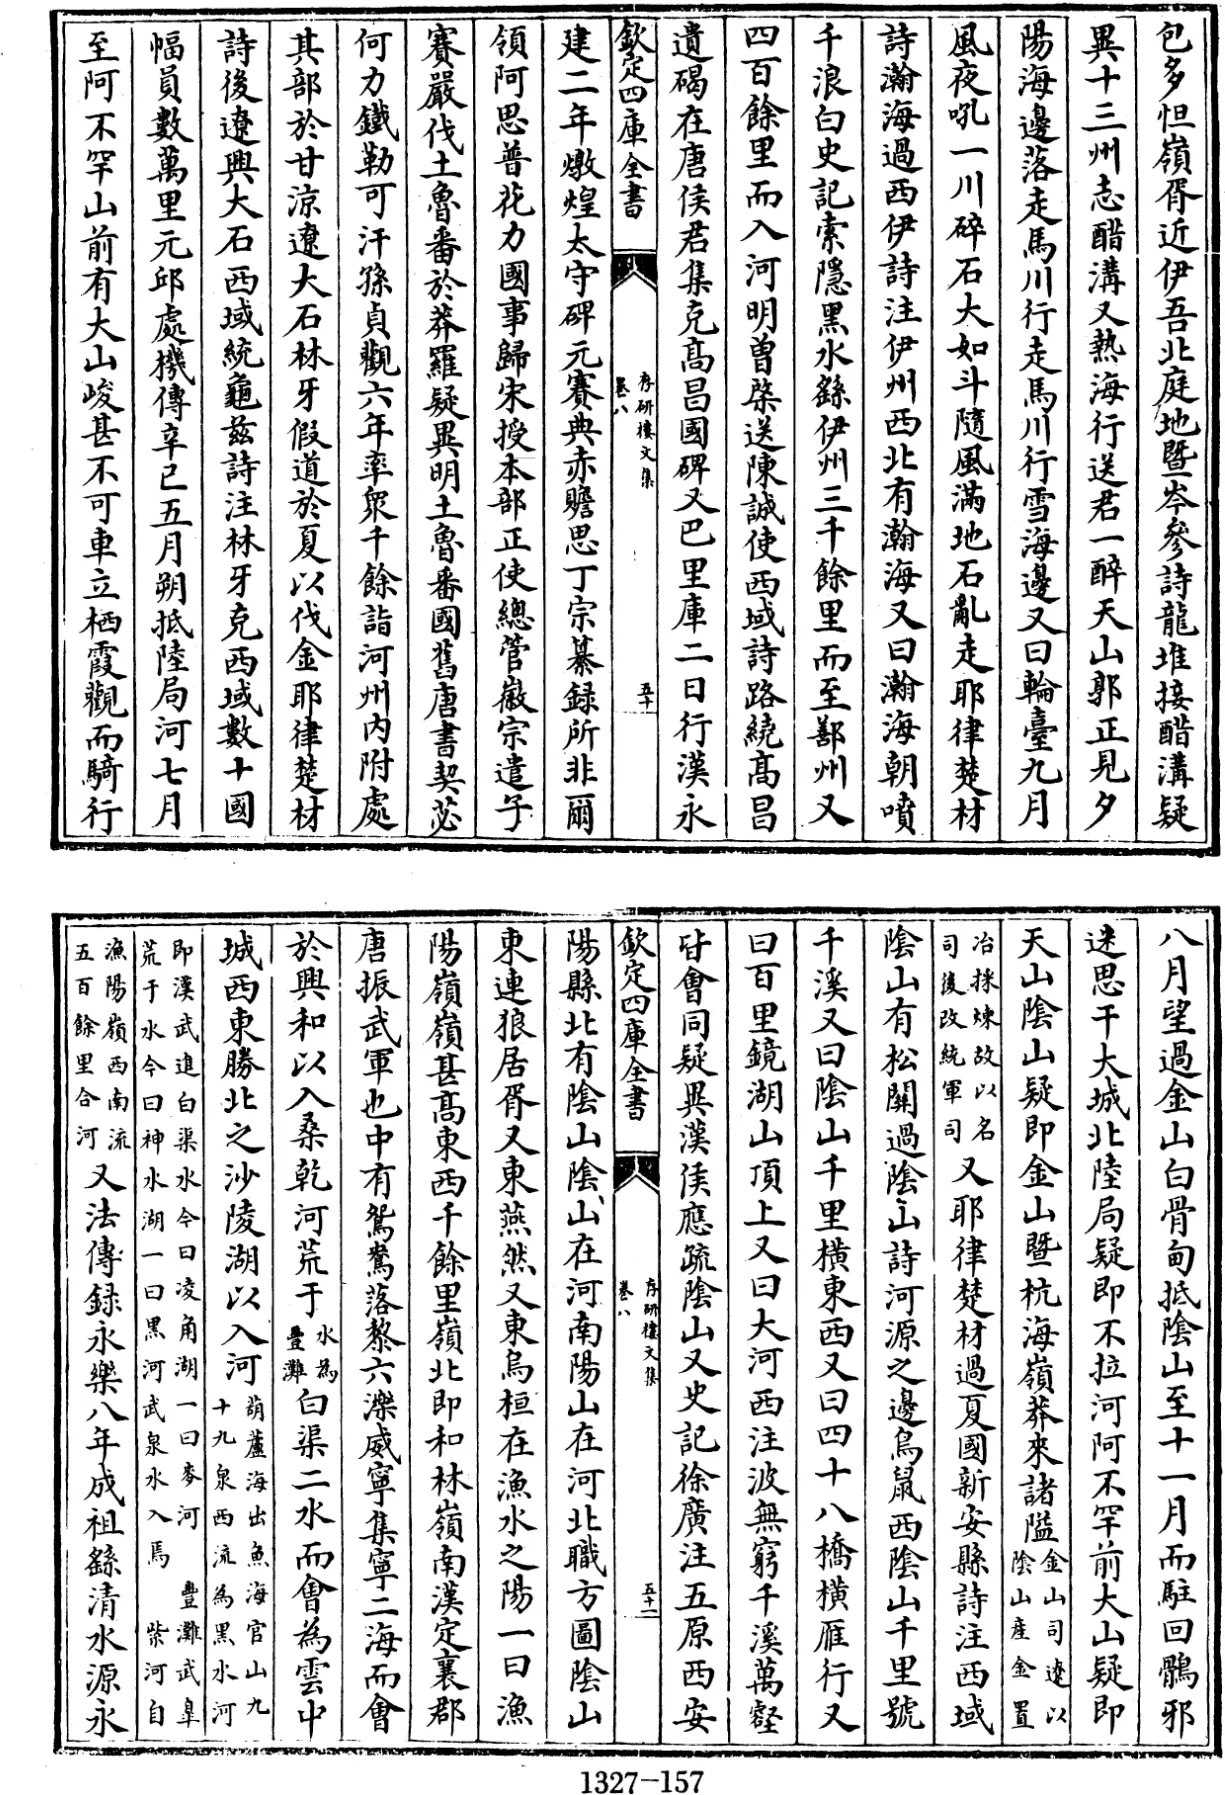 包多怛嶺胥近伊吾北庭地暨岑參詩龍堆接醋溝疑
異十三州志醋溝又熱海行送君一醉天山郭正見夕
陽海邊落走馬川行走馬川行雪海邊又曰輪臺九月
風夜吼一川碎石大如斗隨風滿地石亂走耶律楚材
詩瀚海過西伊詩注伊州西北有瀚海又曰瀚海朝噴
千浪白史記索隱黑水繇伊州三千餘里而至鄯州又
四百餘里而入河明曾棨送陳誠使西域詩路繞高昌
遺碣在唐侯君集克高昌國碑又巴里庫二日行漢永
欽定四庫全書
存研樓文集
卷八
五十
建二年燉煌太守碑元賽典赤贍思丁宗纂録所非爾
領阿思普花力國事歸宋授本部正使總管徽宗遣予
賽嚴伐土魯番於莽羅疑異明土魯番國舊唐書契苾
何力鐵勒可汗孫貞觀六年率衆千餘詣河州内附處
其部於甘涼遼大石林牙假道於夏以伐金耶律楚材
詩後遼興大石西域統龜兹詩注林牙克西域數十國
幅員數萬里元邱處機傳辛巳五月朔抵陸局河七月
至阿不罕山前有大山峻甚不可車立栖霞觀而騎行
八月望過金山白骨甸抵陰山至十一月而駐回鶻邪
迷思干大城北陸局疑即不拉河阿不罕前大山疑即
天山陰山疑即金山暨杭海嶺莽來諸隘金山司遼以陰山産金置
冶採煉故以名司後改統軍司又耶律楚材過夏國新安縣詩注西域
陰山有松關過陰山詩河源之邊鳥鼠西陰山千里號
千溪又曰陰山千里横東西又曰四十八橋横雁行又
曰百里鏡湖山頂上又曰大河西注波無窮千溪萬壑
皆會同疑異漢侯應疏陰山又史記徐廣注五原西安
欽定四庫全書
存研樓文集
卷八
五十一
陽縣北有陰山陰山在河南陽山在河北職方圖陰山
東連狼居胥又東燕然又東烏桓在漁水之陽一曰漁
陽嶺嶺甚高東西千餘里嶺北即和林嶺南漢定襄郡
唐振武軍也中有鴛鴦落㴝六濼威寧集寧二海而會
於興和以入桑乾河荒于水為豐灘白渠二水而會為雲中
城西東勝北之沙陵湖以入河葫蘆海出魚海官山九十九泉西流為黑水河
即漢武進白渠水今曰凌角湖一曰麥河 豐灘武臯荒于水今曰神水湖一曰黑河武泉水入焉 柴河自
漁陽嶺西南流五百餘里合河又法傳録永樂八年成祖繇清水源永
1327-157